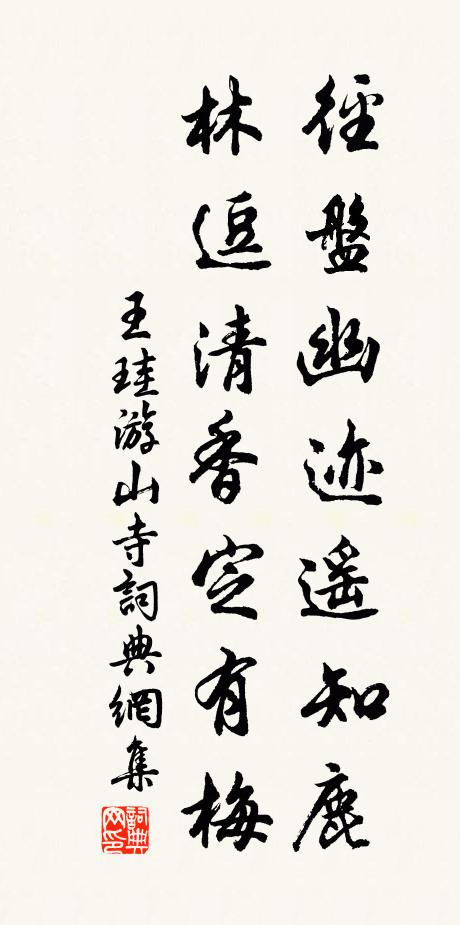 徑盤幽迹遥知鹿
林逗清香定有梅
王珪游山寺詞典網集
詞典网印